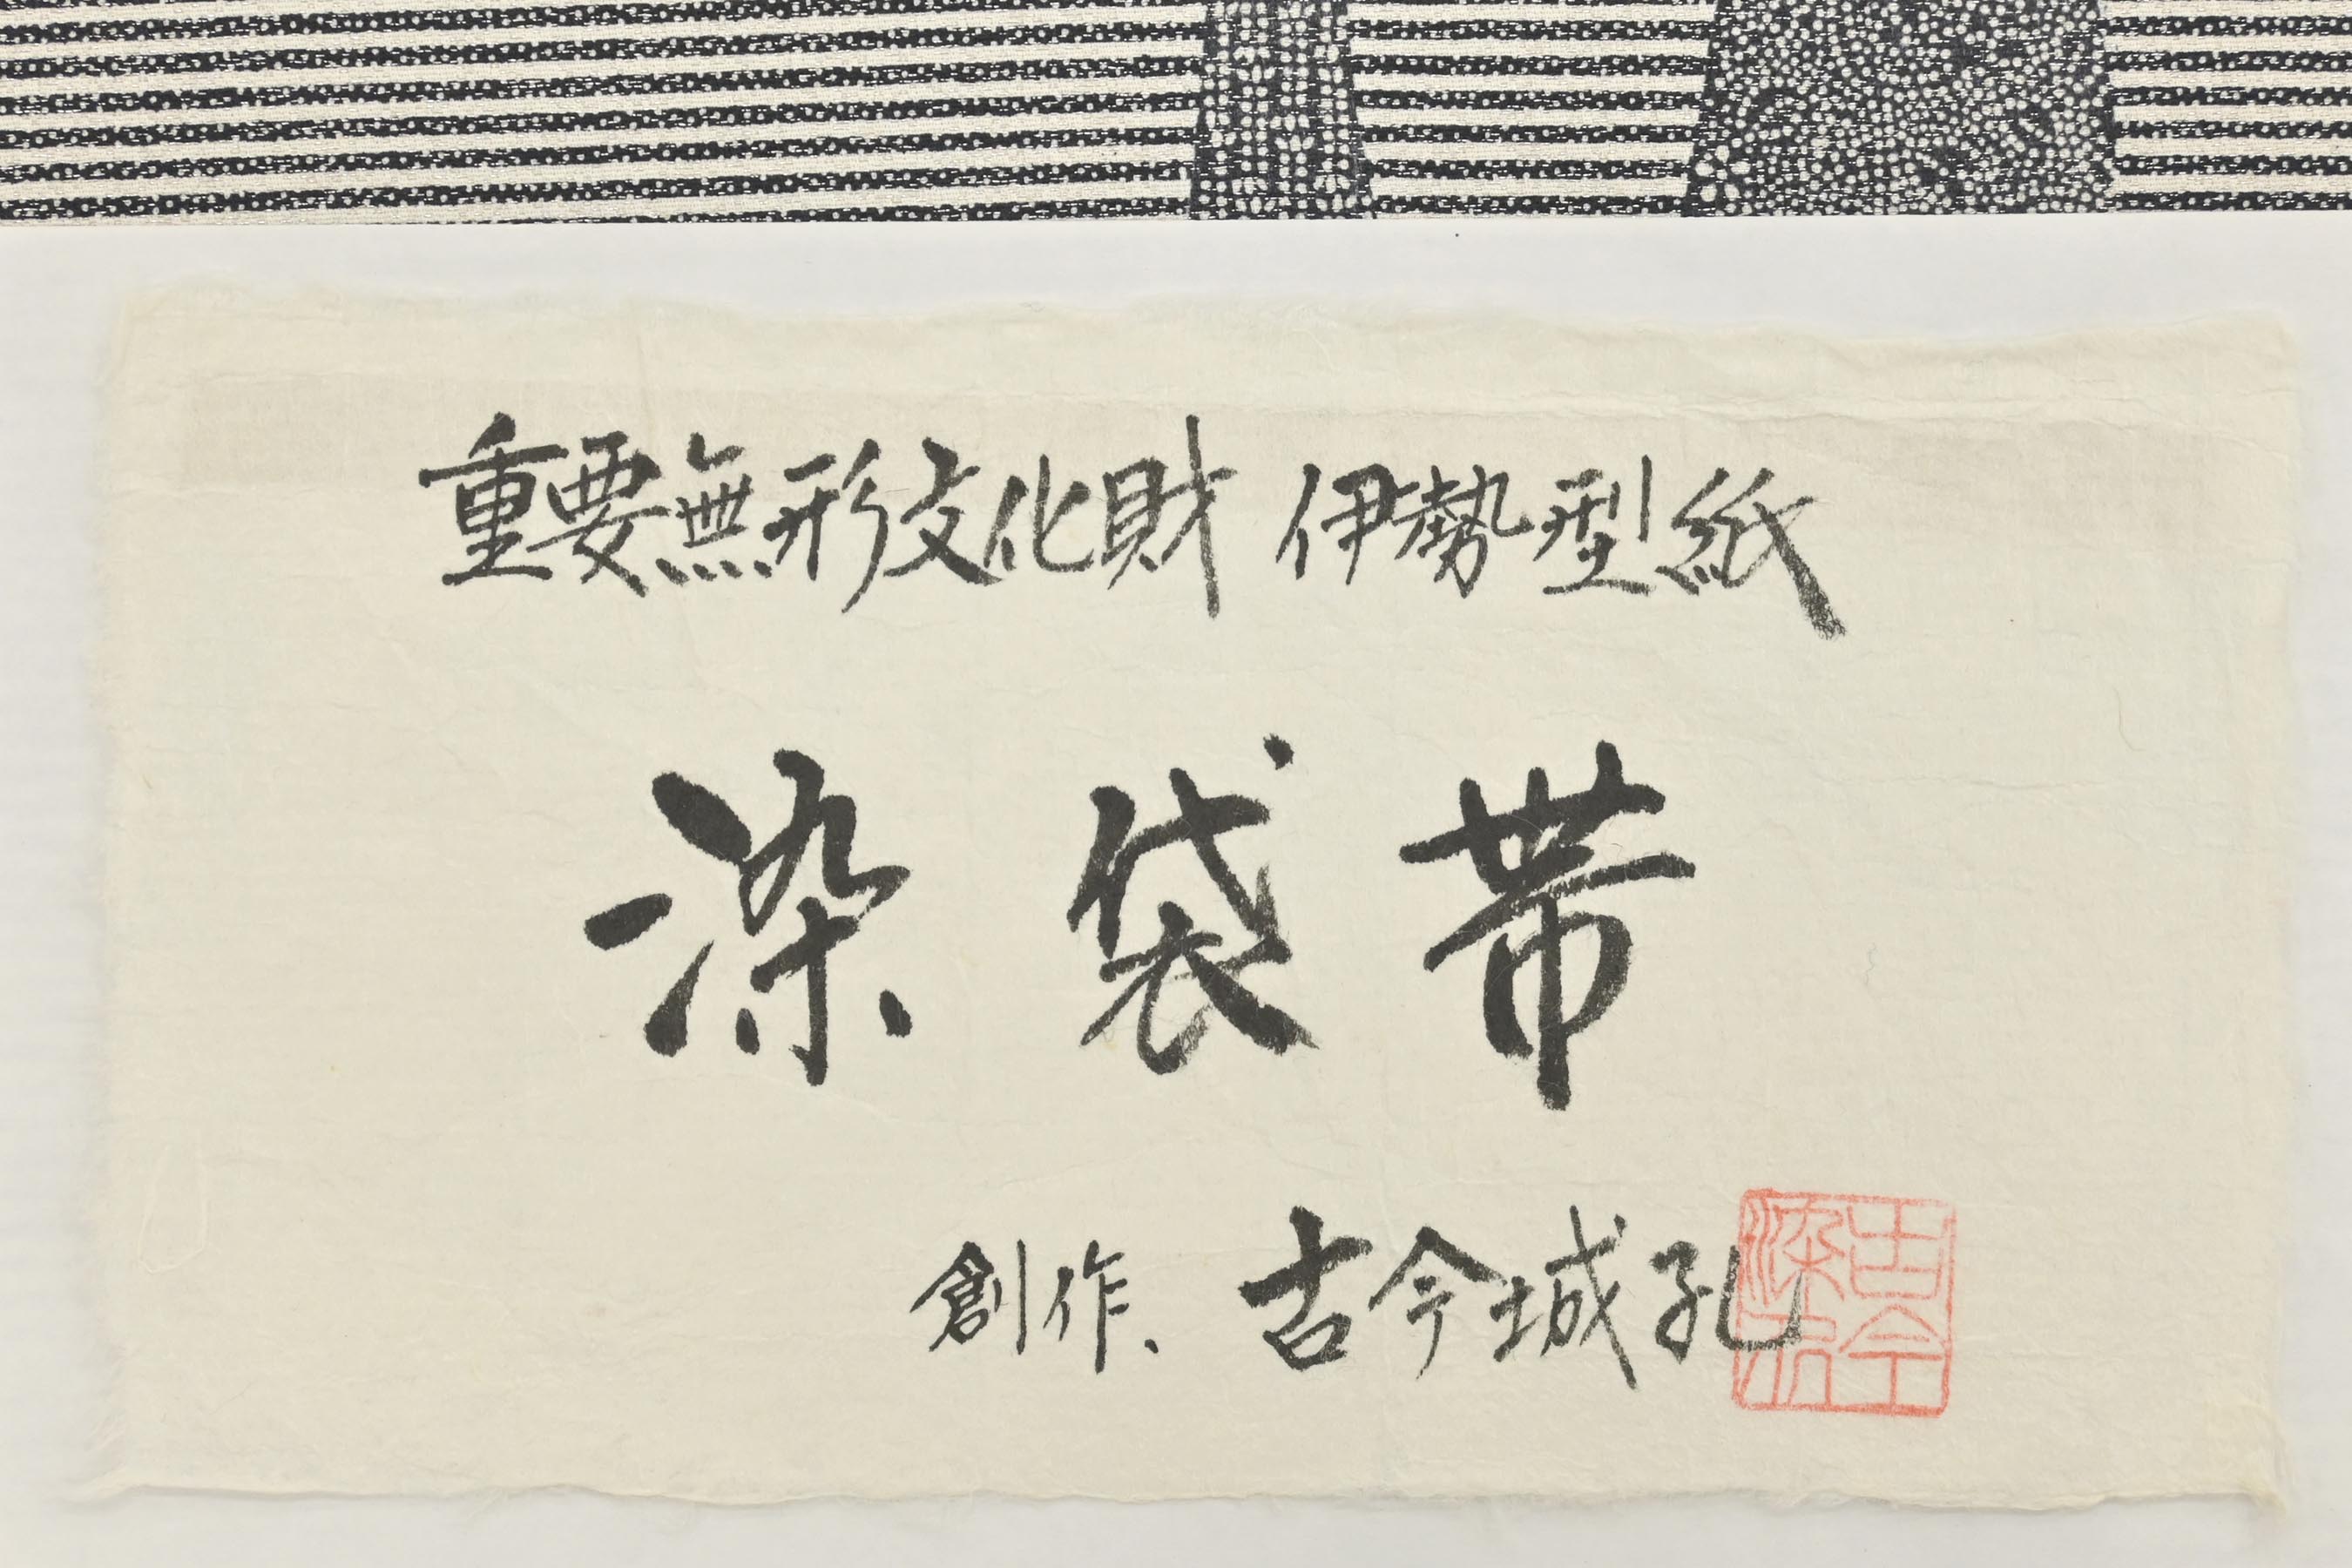 重要無形文化財 伊勢型紙
染袋帯
創作、古今城孔
古今
染